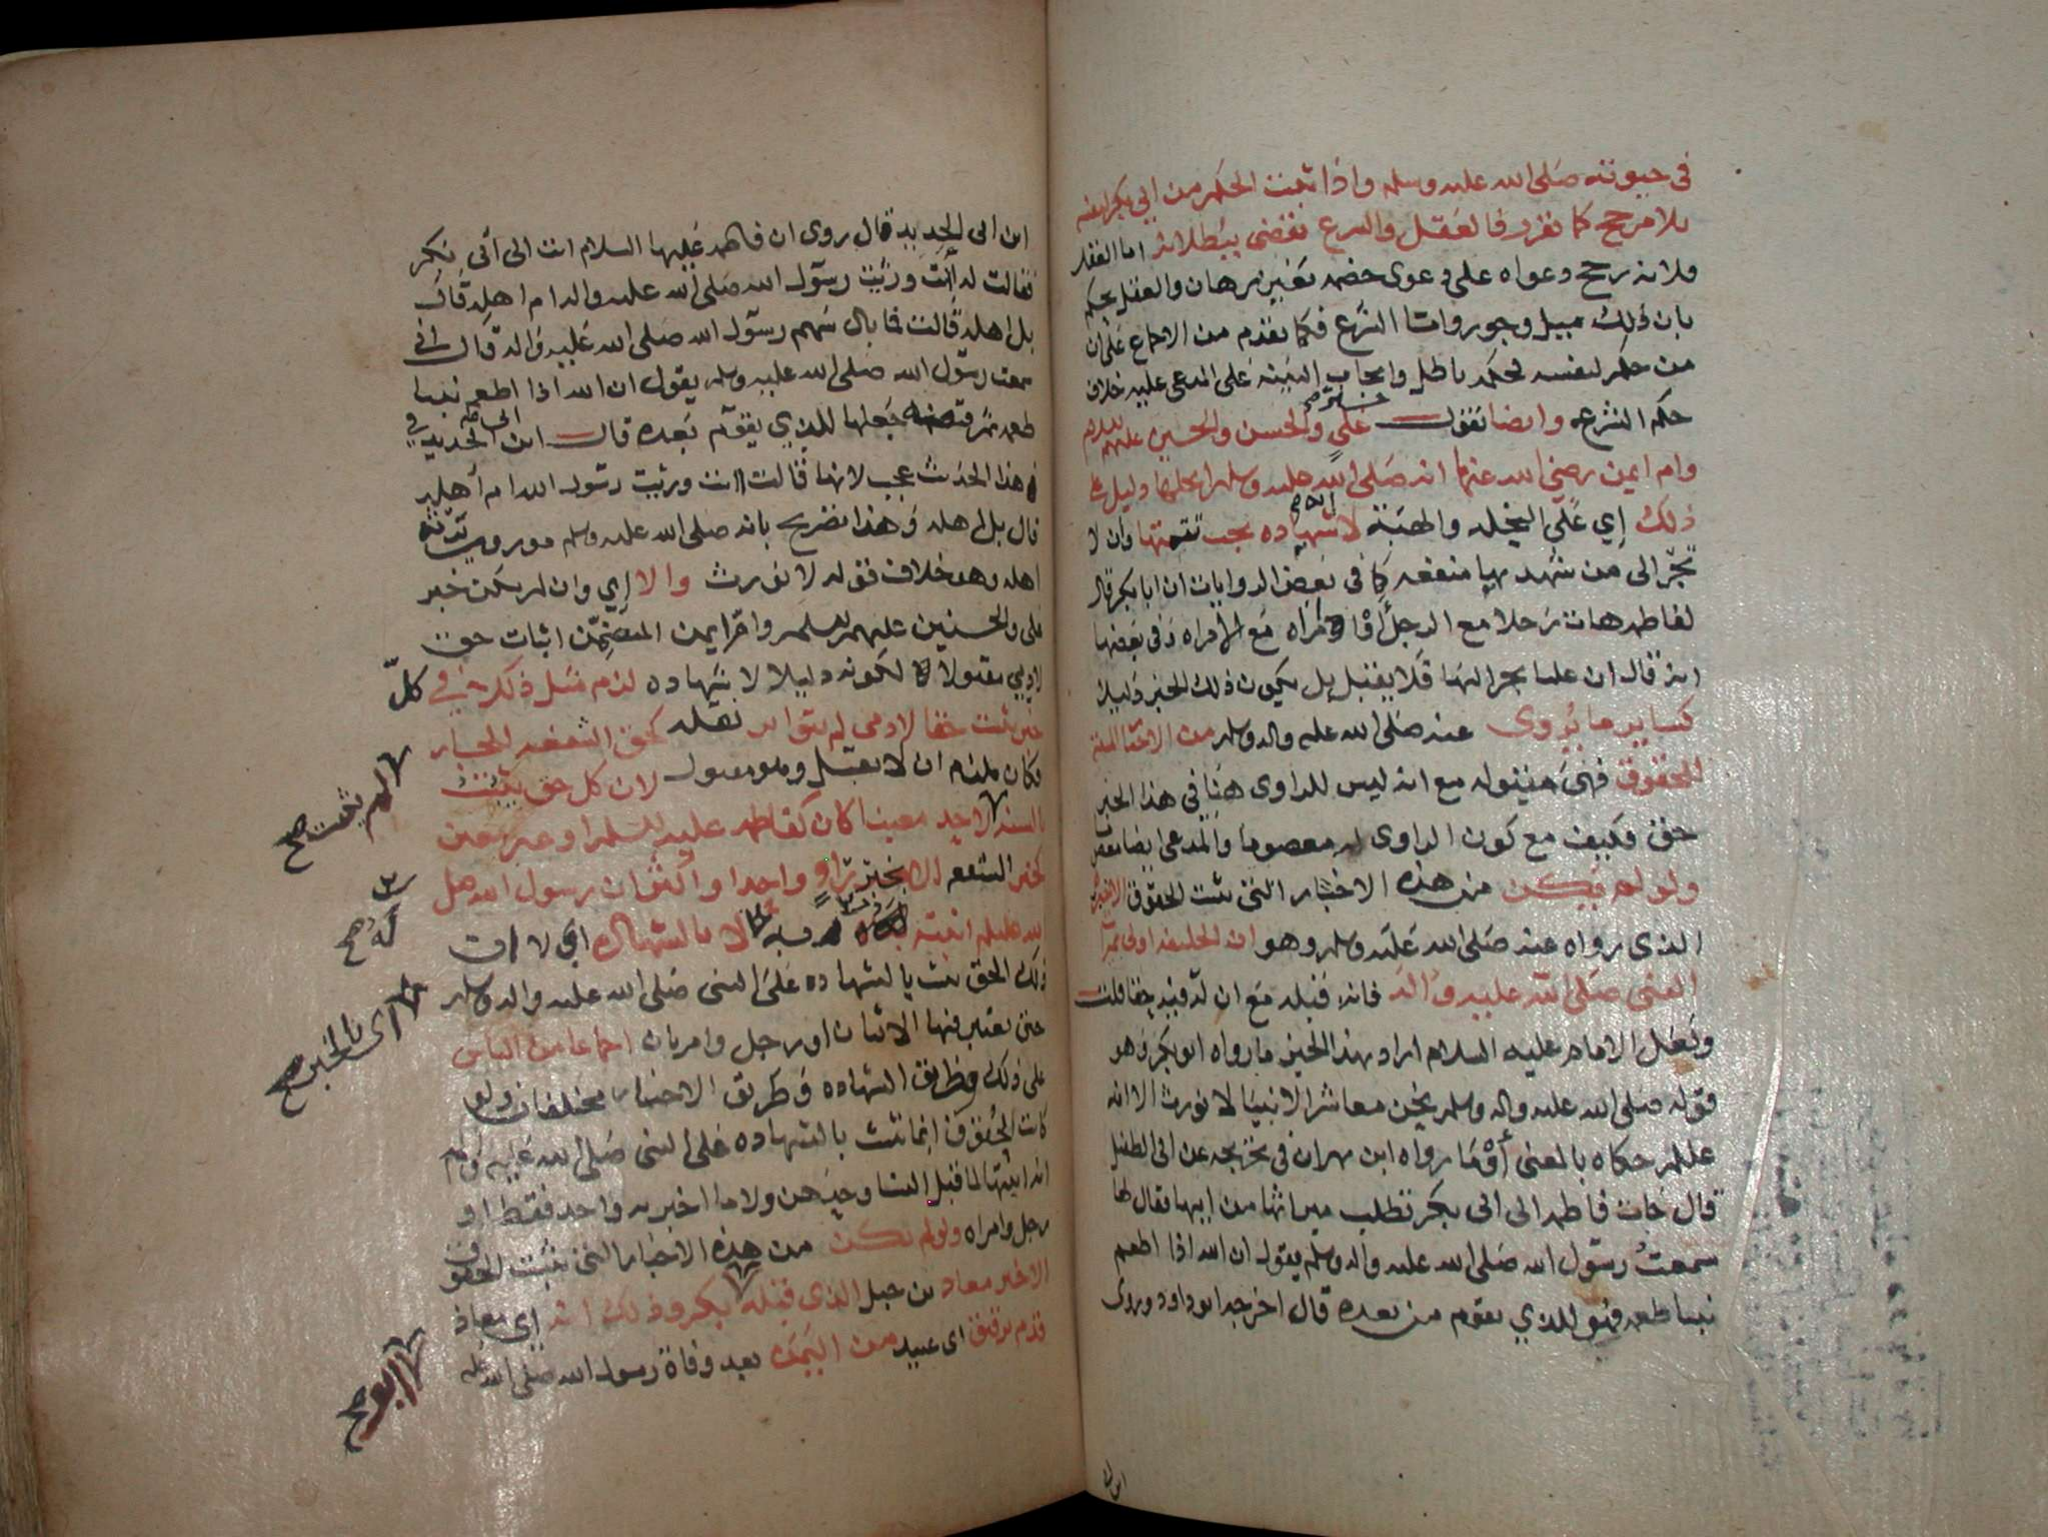 في حيوته صلى الله عليه وسلم واذا ثبت الحكم من ابي بكر لنفسه
بلا مرجح كما تقرر فالعقل والشرع تقضي ببطلانه اما العقل
فلانه رجح دعواه على دعوى خصمه بغير برهان والعقل يحكم
بان ذلك ميل وجور واما الشرع فكما تقدم من الاجماع على ان
من حكم لنفسه فحكمه باطل وايجاب البينة على المدعى عليه خلاف
حكم الشرع وايضا نقول علي والحسن والحسين عليهم السلام
وام ايمن رضي الله عنها انه صلى الله عليه وسلم انحلها دليل على
ذلك إي على النحلة والهبة لا شهاده يجب تتمتها وان لا
تجر الى من شهد بها منفعه كما في بعض الروايات ان ابا بكر قال
لفاطمه هات رجلا مع الرجل أو امراه مع الامراه وفي بعضها
انه قال ان عليا يجر اليها فلا يقبل بل يكون ذلك الخبر دليلا
كساير ما يروى عنه صلى الله عليه واله وسلم من الاخبار المثبتة
للحقوق فهي مقبوله مع انه ليس للراوى هنا في هذا الخبر
حق فكيف مع كون الراوى له معصوما والمدعى ايضا معصوم
ولو لم يكن من هذه الاخبار التي تثبت الحقوق الا خبر
الذى رواه عنه صلى الله عليه وسلم وهو ان الخليفة اولى بميراث
النبي صلى الله عليه واله فانه قبله مع ان له فيه حقا قلت
ولعل الامام عليه السلام اراد بهذا الخبر ما رواه ابو بكر وهو
قوله صلى الله عليه واله وسلم نحن معاشر الانبيا لا نورث الا انه
عللم حكاه بالمعنى أو ما رواه ابن بهران في تخريجه عن ابي الطفيل
قال جات فاطمه الى ابي بكر تطلب ميراثها من ابيها فقال لها
سمعت رسول الله صلى الله عليه واله وسلم يقول ان الله اذا اطعم
نبيا طعمه فهو للذي يقوم من بعده قال اخرجه ابو داود وروى
ابن ابي
ابن ابي الحديد قال روى ان فاطمه عليها السلام اتت الى أبي بكر
فقالت له أنت ورثت رسول الله صلى الله عليه واله ام اهله قال
بل اهله قالت فما بال سهم رسول الله صلى الله عليه واله قال اني
سمعت رسول الله صلى الله عليه وسلم يقول ان الله اذا اطعم نبيا
طعمه ثم قبضه جعلها للذي يقوم بعده قال ابن ابي الحديد في
هذا الحديث عجب لانها قالت اانت ورثت رسول الله ام أهله
قال بل اهله وهذا تصريح بانه صلى الله عليه وسلم موروث يرثه
اهله وهو خلاف قوله لا نورث والا إي وان لم يكن خبر
علي والحسنين عليهم السلم وام ايمن المتضمن اثبات حق
لادمي مقبولا لكونه دليلا لا شهاده لزم مثل ذلك في كل
خبر يثبت حقا لادمي لم يتواتر نقله كحق الشفعه للجار
فكان يلزم ان لا يقبل وهو مقبول لان كل حق يثبت
بالسنه لاحد معينا كان كفاطمه عليها السلم او غير معين
كخبر الشفعه بخبر راو واحدا واكثر ان رسول الله صلى
الله عليه وسلم اثبته لا بالشهاده اي لا ان
ذلك الحق ثبت بالشهاده على النبي صلى الله عليه واله وسلم
حتى يعتبر فيها الاثنان او رجل وامراتان اجماعا من الناس
على ذلك وطريق الشهاده وطريق الاخبار مختلفان ولو
كانت الحقوق انما تثبت بالشهاده على النبي صلى الله عليه وسلم
انه اثبتها لما قبل النسا وحدهن ولا ما اخبر به واحد فقط او
رجل وامراه ولو لم تكن من هذه الاخبار التي تثبت الحقوق
الا خبر معاذ بن جبل الذى قبله بكر وذلك انه إي معاذ
قدم برقيق اى عبيد من اليمن بعد وفاة رسول الله صلى الله عليه
لم يثبت صح
له صح
اى بالخبر صح
ابو صح